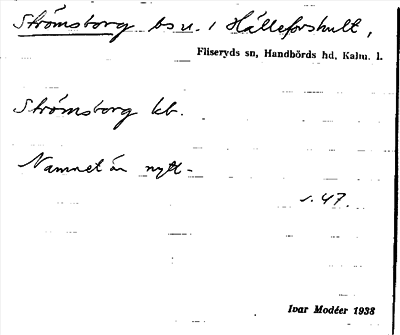 Strömsborg bs u. / Hälleforshult,
Fliseryds sn, Handbörds hd, Kalm. l.
Strömsborg kb.
Namnet är nytt.
s. 47.
Ivar Modéer 1938